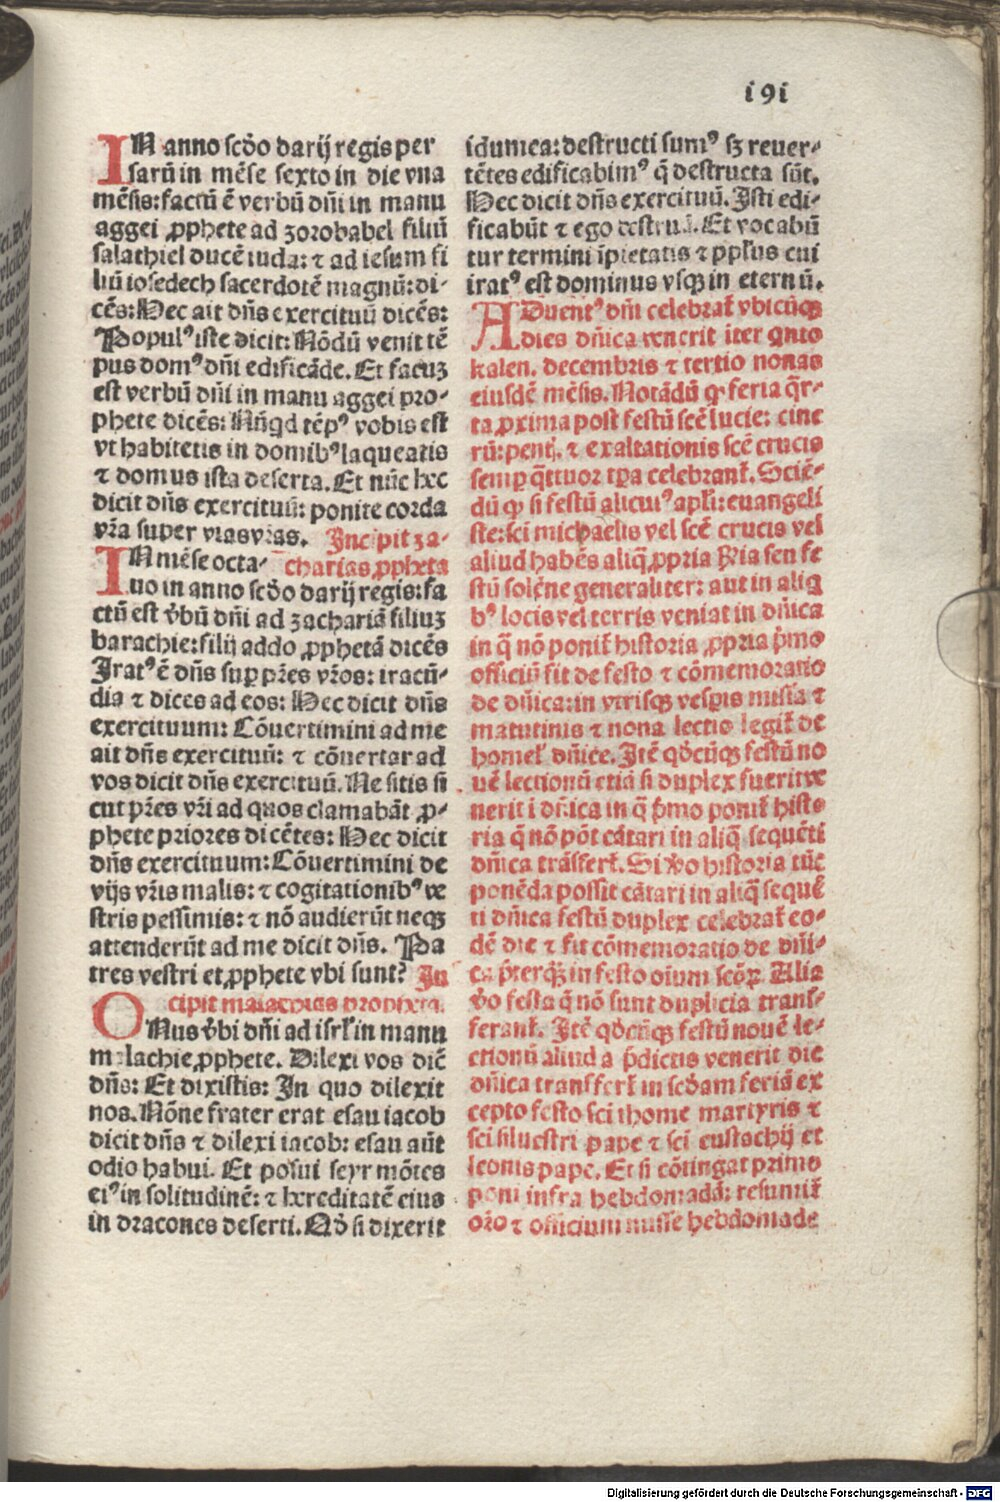 i9i
IN anno scd̄o darij regis per
sarū in mēse sexto in die vna
mēsis: factū ē verbū dn̄i in manu
aggei ꝓphete ad zorobabel filiū
salathiel ducē iuda: ⁊ ad iesum fi
liū iosedech sacerdotē magnū: di-
cēs: Hec ait dn̄s exercituū dicēs:
Populꝰ iste dicit: Nōdū venit tē
pus domꝰ dn̄i edificāde. Et factuꝫ
est verbū dn̄i in manu aggei pro-
phete dicēs: Nūqd tēpꝰ vobis est
vt habitetis in domibꝰ laqueatis
⁊ domus ista deserta. Et nūc hec
dicit dn̄s exercituū: ponite corda
vr̄a super vias vr̄as. Incipit za-
IN mēse octa- charias ꝓpheta
uo in anno scd̄o darij regis: fa
ctū est v̄bū dn̄i ad zachariā filiuꝫ
barachie: filij addo ꝓphetā dicēs
Iratꝰ ē dn̄s suꝑ pr̄es vr̄os: iracū-
dia ⁊ dices ad eos: Hec dicit dn̄s
exercituum: Cōuertimini ad me
ait dn̄s exercituū: ⁊ cōuertar ad
vos dicit dn̄s exercituū. Ne sitis si
cut pr̄es vr̄i ad quos clamabāt ꝓ-
phete priores dicētes: Hec dicit
dn̄s exercituum: Cōuertimini de
vijs vr̄is malis: ⁊ cogitationibꝰ ve
stris pessimis: ⁊ nō audierūt neqꝫ
attenderūt ad me dicit dn̄s. Pa
tres vestri et ꝓphete vbi sunt? In
cipit malachias propheta.
ONus v̄bi dn̄i ad isrl̄ in manu
malachie ꝓphete. Dilexi vos dic̄
dn̄s: Et dixistis: In quo dilexit
nos. Nōne frater erat esau iacob
dicit dn̄s ⁊ dilexi iacob: esau aūt
odio habui. Et posui seyr mōtes
eiꝰ in solitudinē: ⁊ hereditatē eius
in dracones deserti. Qd̄ si dixerit
idumea: destructi sumꝰ sꝫ reuer-
tētes edificabimꝰ q̄ destructa sūt.
Hec dicit dn̄s exercituū. Isti edi-
ficabūt ⁊ ego destruā. Et vocabū
tur termini īpietatis ⁊ ppl̄us cui
iratꝰ est dominus vsqꝫ in eternū.
ADuentꝰ dn̄i celebrat̄ vbicūqꝫ
dies dn̄ica venerit iter qnto
kalen. decembris ⁊ tertio nonas
eiusdē mēsis. Notādū ꝙ feria q̄r-
ta ꝓxima post festū scē lucie: cine
rū: pent̄. ⁊ exaltationis scē crucis
semꝑ q̄ttuor tꝑa celebrant̄. Sciē-
dū ꝙ si festū alicuiꝰ apl̄i: euangeli
ste: sci michaelis vel scē crucis vel
aliud habēs aliq̄ ꝓpria hr̄ia seu fe
stū solēne generaliter: aut in aliq
bꝰ locis vel terris veniat in dn̄ica
in q̄ nō ponit̄ historia ꝓpria p̄mo
officiū fit de festo ⁊ cōmemoratio
de dn̄ica: in vtrisqꝫ vesꝑis missa ⁊
matutinis ⁊ nona lectio legit̄ de
homel̄ dn̄ice. Itē qd̄cūqꝫ festū no
uē lectionū etiā si duplex fuerit ve
nerit i dn̄ica in q̄ p̄mo ponit̄ histo
ria q̄ nō pōt cātari in aliq̄ sequēti
dn̄ica trāsfert̄. Si v̄o historia tūc
ponēda possit cātari in aliq̄ sequē
ti dn̄ica festū duplex celebrat̄ eo-
dē die ⁊ fit cōmemoratio de dn̄i-
ca p̄terqꝫ in festo oīum scōꝝ. Alia
v̄o festa q̄ nō sunt duplicia trans-
ferant̄. Itē qd̄cūqꝫ festū nouē le-
ctionū aliud a p̄dictis venerit die
dn̄ica transfert̄ in scd̄am feriā ex
cepto festo sci thome martyris ⁊
sci siluestri pape ⁊ sci eustachij et
leonis pape. Et si cōtingat primo
poni infra hebdomadā: resumit̄
or̄o ⁊ officium misse hebdomade
Digitalisierung gefördert durch die Deutsche Forschungsgemeinschaft - DFG